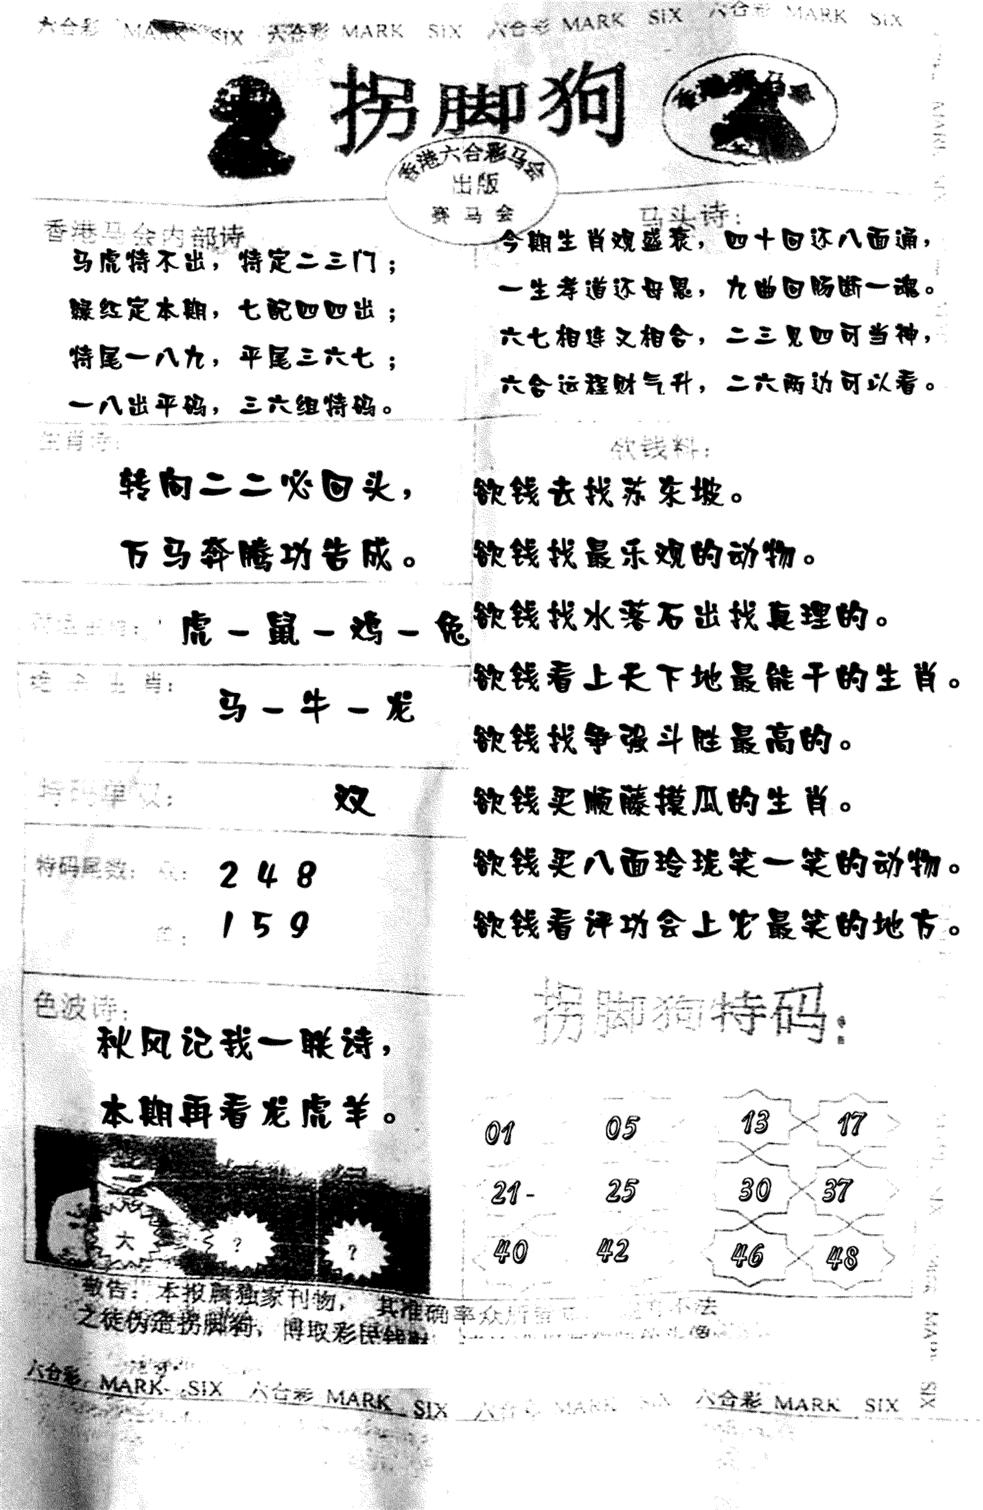 六合彩 MARK SIX 六合彩 MARK SIX 六合彩 MARK SIX 六合彩 MARK SIX
拐脚狗
香港赛马会
香港六合彩马会
出版
赛马会
香港马会内部诗
马虎特不出，特定二三门；
绿红定本期，七配四四出；
特尾一八九，平尾三六七；
一八出平码，三六组特码。
马头诗：
今期生肖观盛衰，四十回还八面通，
一生孝道还母恩，九曲回肠断一魂。
六七相连又相合，二三见四可当神，
六合运程财气升，二六两边可以看。
生肖诗：
转向二二必回头，
万马奔腾功告成。
虎－鼠－鸡－兔
绝杀生肖：
马－牛－龙
特码单双：
双
特码尾数：双：
2 4 8
单：
1 5 9
色波诗：
秋风记我一联诗，
本期再看龙虎羊。
大
？
？
欲钱料：
欲钱去找苏东坡。
欲钱找最乐观的动物。
欲钱找水落石出找真理的。
欲钱看上天下地最能干的生肖。
欲钱找争强斗胜最高的。
欲钱买顺藤摸瓜的生肖。
欲钱买八面玲珑笑一笑的动物。
欲钱看评功会上它最笑的地方。
拐脚狗特码：
01 05 13 17
21- 25 30 37
40 42 46 48
敬告：本报属独家刊物，其准确率众所
不法
之徒伪造拐脚狗，博取彩民钱财
六合彩 MARK SIX 六合彩 MARK SIX 六合彩 MARK SIX 六合彩 MARK SIX